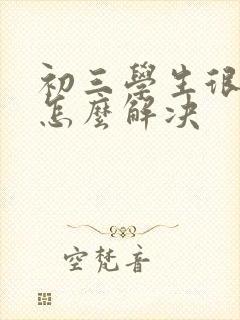 初三學生很
怎麼解决
空梵音